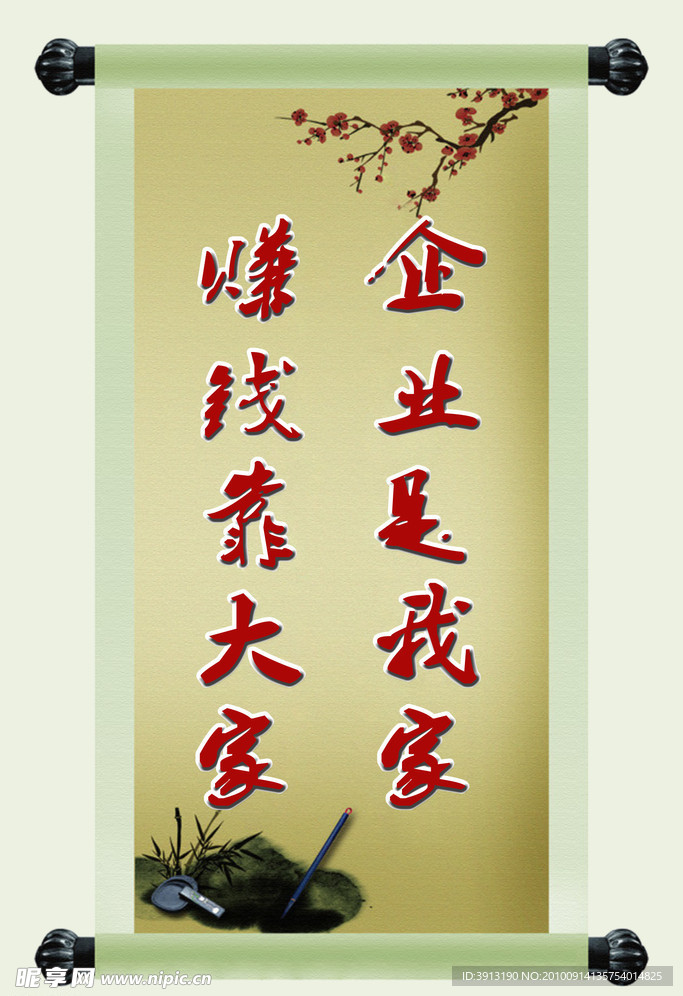 企业是我家
赚钱靠大家
昵享网 www.nipic.cn
ID:3913190 NO:20100914135754014825